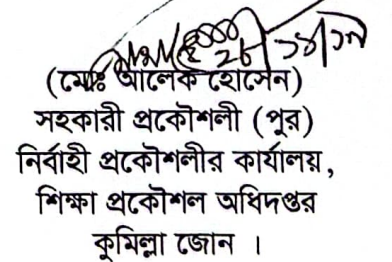 (মোঃ আলেক হোসেন)
সহকারী প্রকৌশলী (পুর)
নির্বাহী প্রকৌশলীর কার্যালয়,
শিক্ষা প্রকৌশল অধিদপ্তর
কুমিল্লা জোন ।